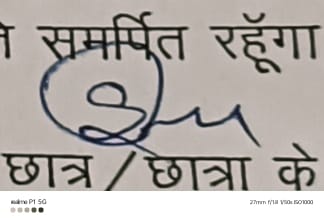 समर्पित रहूँगा
छात्र / छात्रा के
realme P1 5G
27mm f/1.8 1/50s ISO1000